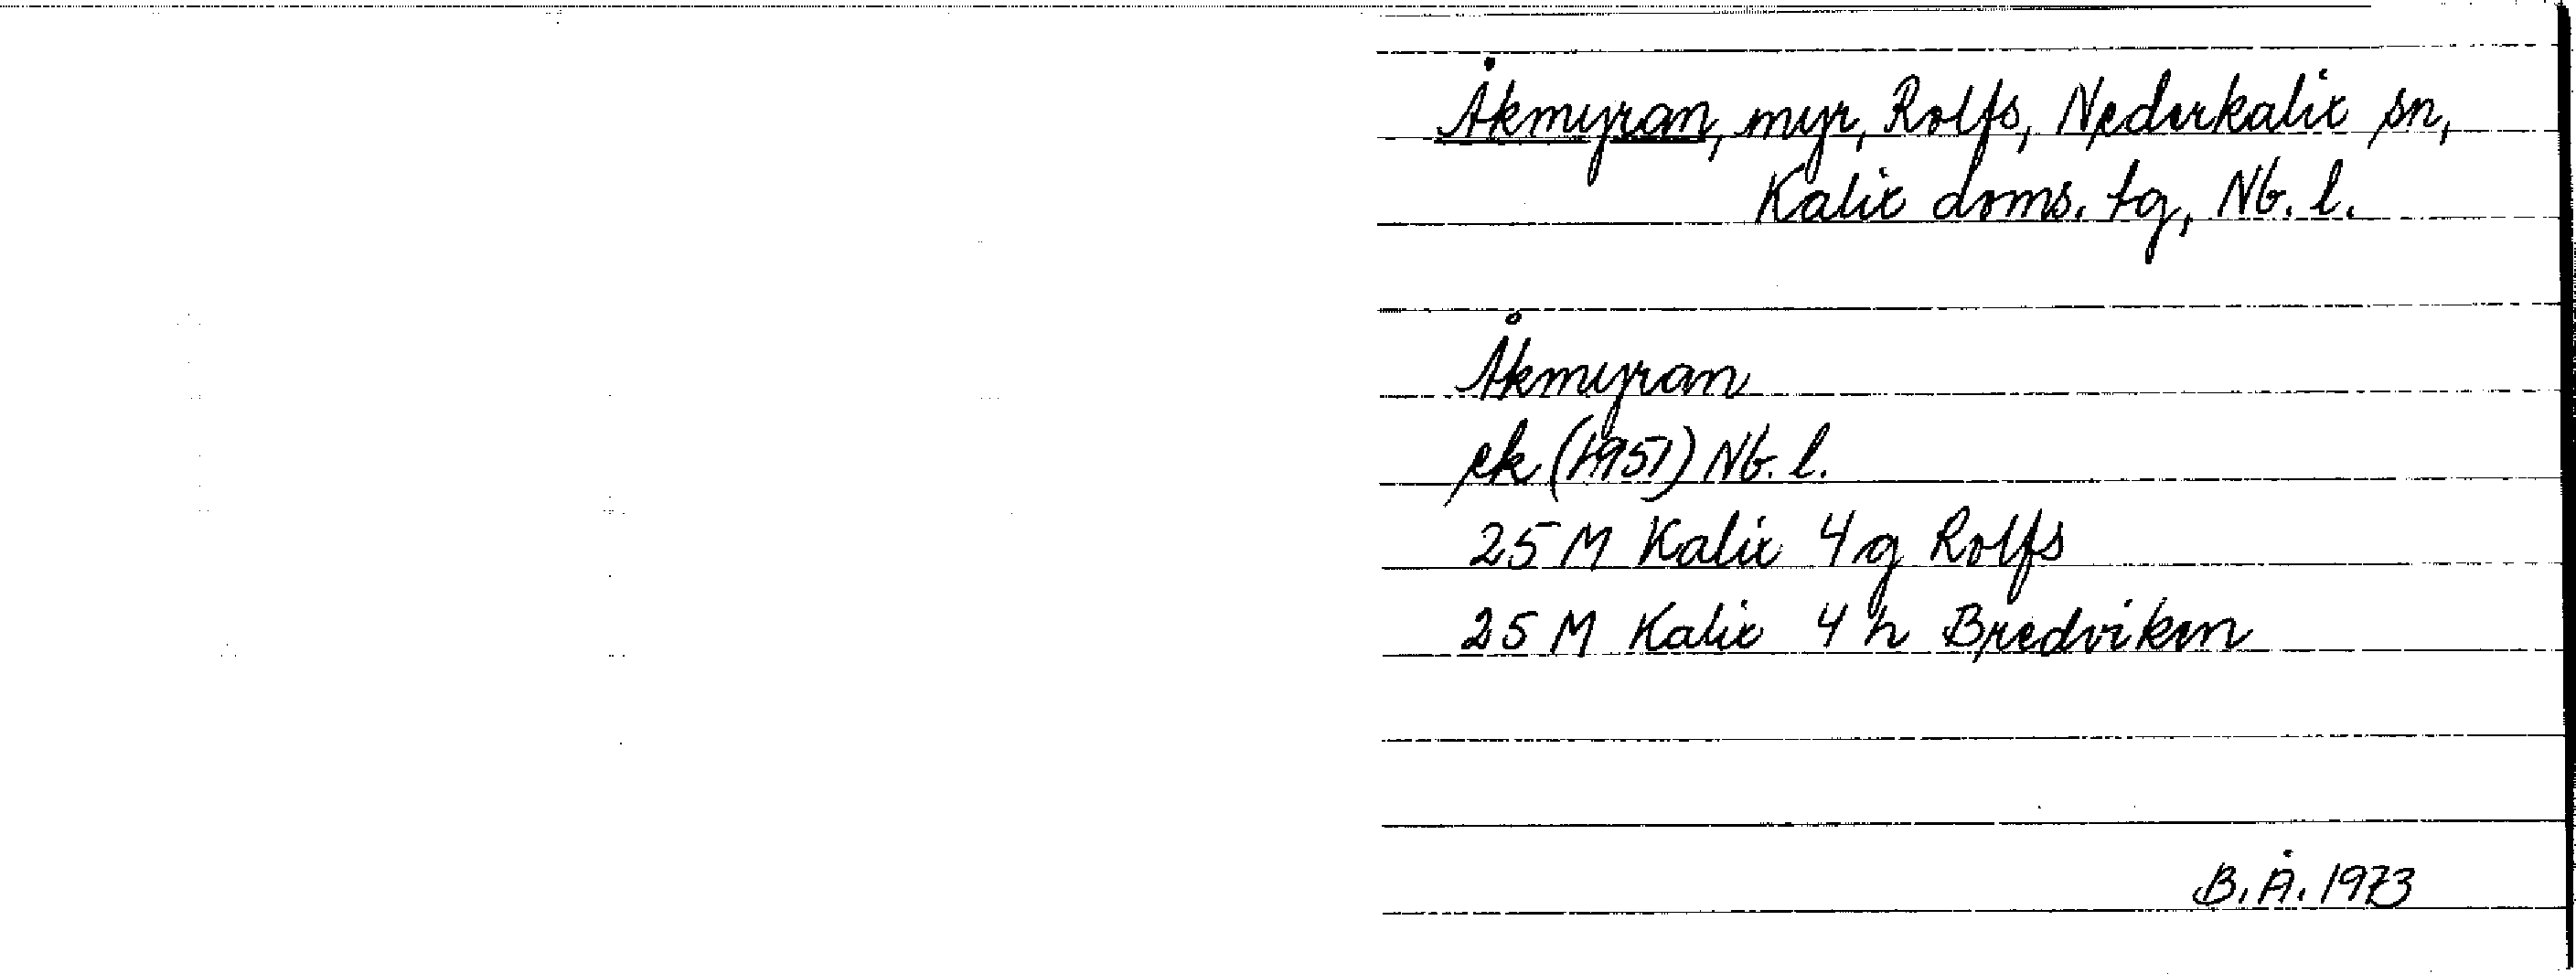 Åkmyran, myr, Rolfs, Nederkalix sn,
Kalix doms. tg, Nb. l.
Åkmyran
ek (1951) Nb. l.
25 M Kalix 4 g Rolfs
25 M Kalix 4 h Bredviken
B. Å. 1973